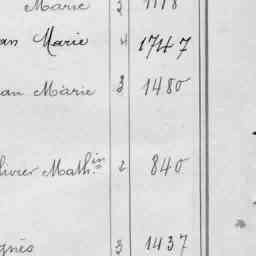 Marie 2 1118
an Marie 4 1747
an Marie 3 1480
livier Math.in 2 840
gnès 3 1437